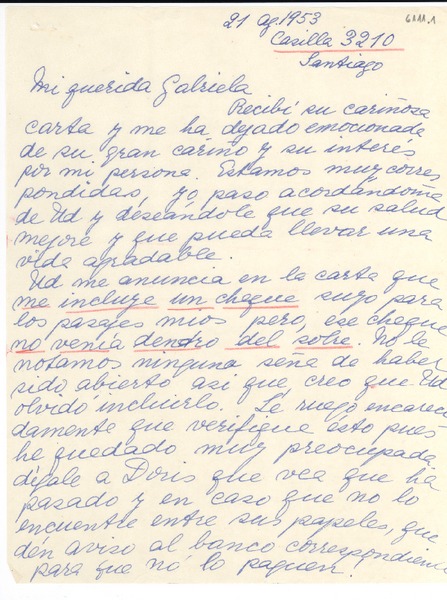 21 ag. 1953
6111.1
Casilla 3210
Santiago
Mi querida Gabriela
Recibí su cariñosa
carta y me ha dejado emocionada
de su gran cariño y su interés
por mi persona. Estamos muy corres
pondidas, yo paso acordándome
de Ud y deseándole que su salud
mejore y que pueda llevar una
vida agradable.
Ud me anuncia en la carta que
me incluye un cheque suyo para
los pasajes mios pero, ese cheque
no venía dentro del sobre. No le
notamos ninguna seña de haber
sido abierto así que creo que Ud
olvidó incluirlo. Le ruego encare
cidamente que verifique esto pues
he quedado muy preocupada
dígale a Doris que vea que ha
pasado y en caso que no lo
encuentre entre sus papeles, que
dén aviso al banco correspondiente
para que no lo paguen.